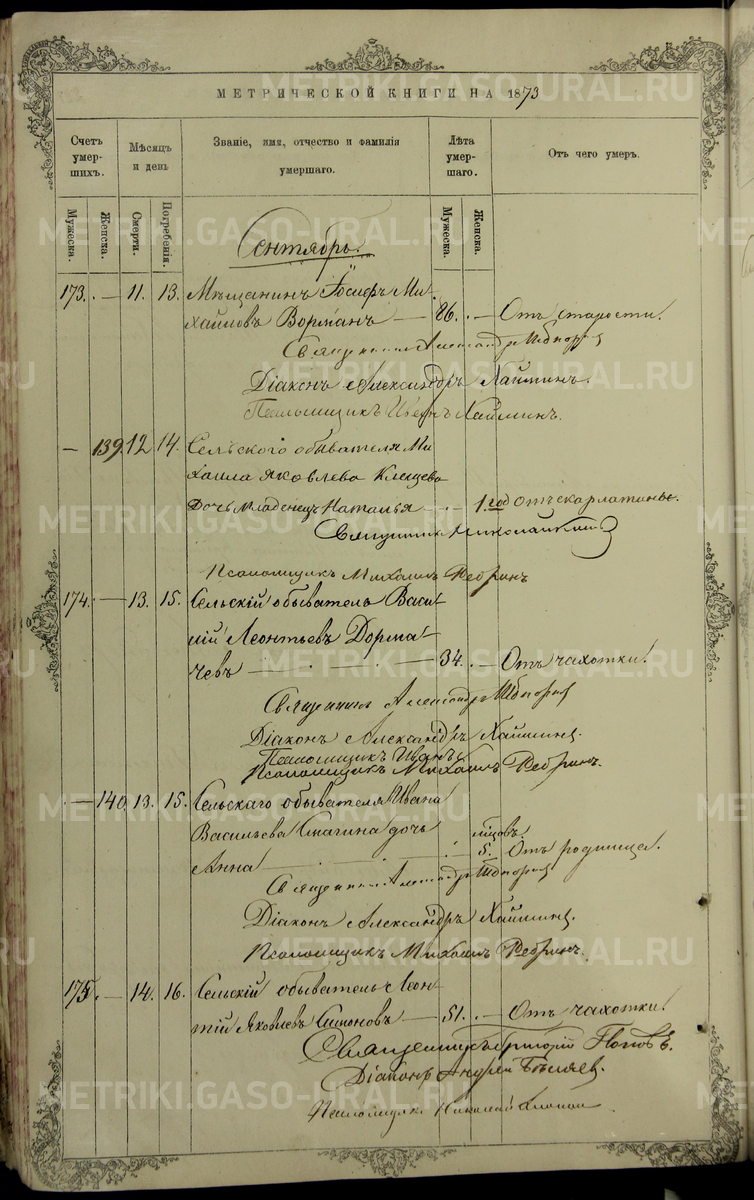 МЕТРИЧЕСКОЙ КНИГИ НА 1873
Счетъ умершихъ.
Мѣсяцъ и день
Званіе, имя, отчество и фамилія умершаго.
Лѣта умершаго.
Отъ чего умеръ.
Мужеска.
Женска.
Смерти.
Погребенія.
Мужеска.
Женска.
Сентябрь.
173. — 11. 13. Мѣщанинъ Іосифъ Ми-
хайловъ Ворманъ — 86. — Отъ старости.
Священникъ Александръ
Діаконъ Александръ Хайминъ.
Псаломщикъ Иванъ Хайминъ.
— 139. 12 14. Сельскаго обывателя Ми
хаила Яковлева Клещева
дочь младенецъ Наталья — 1 год отъ скарлатины.
Священник
Псаломщикъ Михаилъ Ребринъ
174. — 13. 15. Сельскій обыватель Васи-
лій Леонтьевъ Дорма-
чевъ — 34. — Отъ чахотки.
Священникъ Александръ
Діаконъ Александръ Хайминъ.
Псаломщикъ Иванъ
Псаломщикъ Михаилъ Ребринъ.
— 140. 13. 15. Сельскаго обывателя Ивана
Васильева Спагина дочь мѣсяцовъ.
Анна — 5. Отъ родимца.
Священникъ Александръ
Діаконъ Александръ Хайминъ.
Псаломщикъ Михаилъ Ребринъ.
175. — 14. 16. Сельскій обыватель Леон-
тій Яковлевъ Симоновъ — 51. — Отъ чахотки.
Священникъ Григорій Поповъ.
Діаконъ Андрей Бѣляев.
Псаломщикъ Николай
METRIKI.GASO-URAL.RU